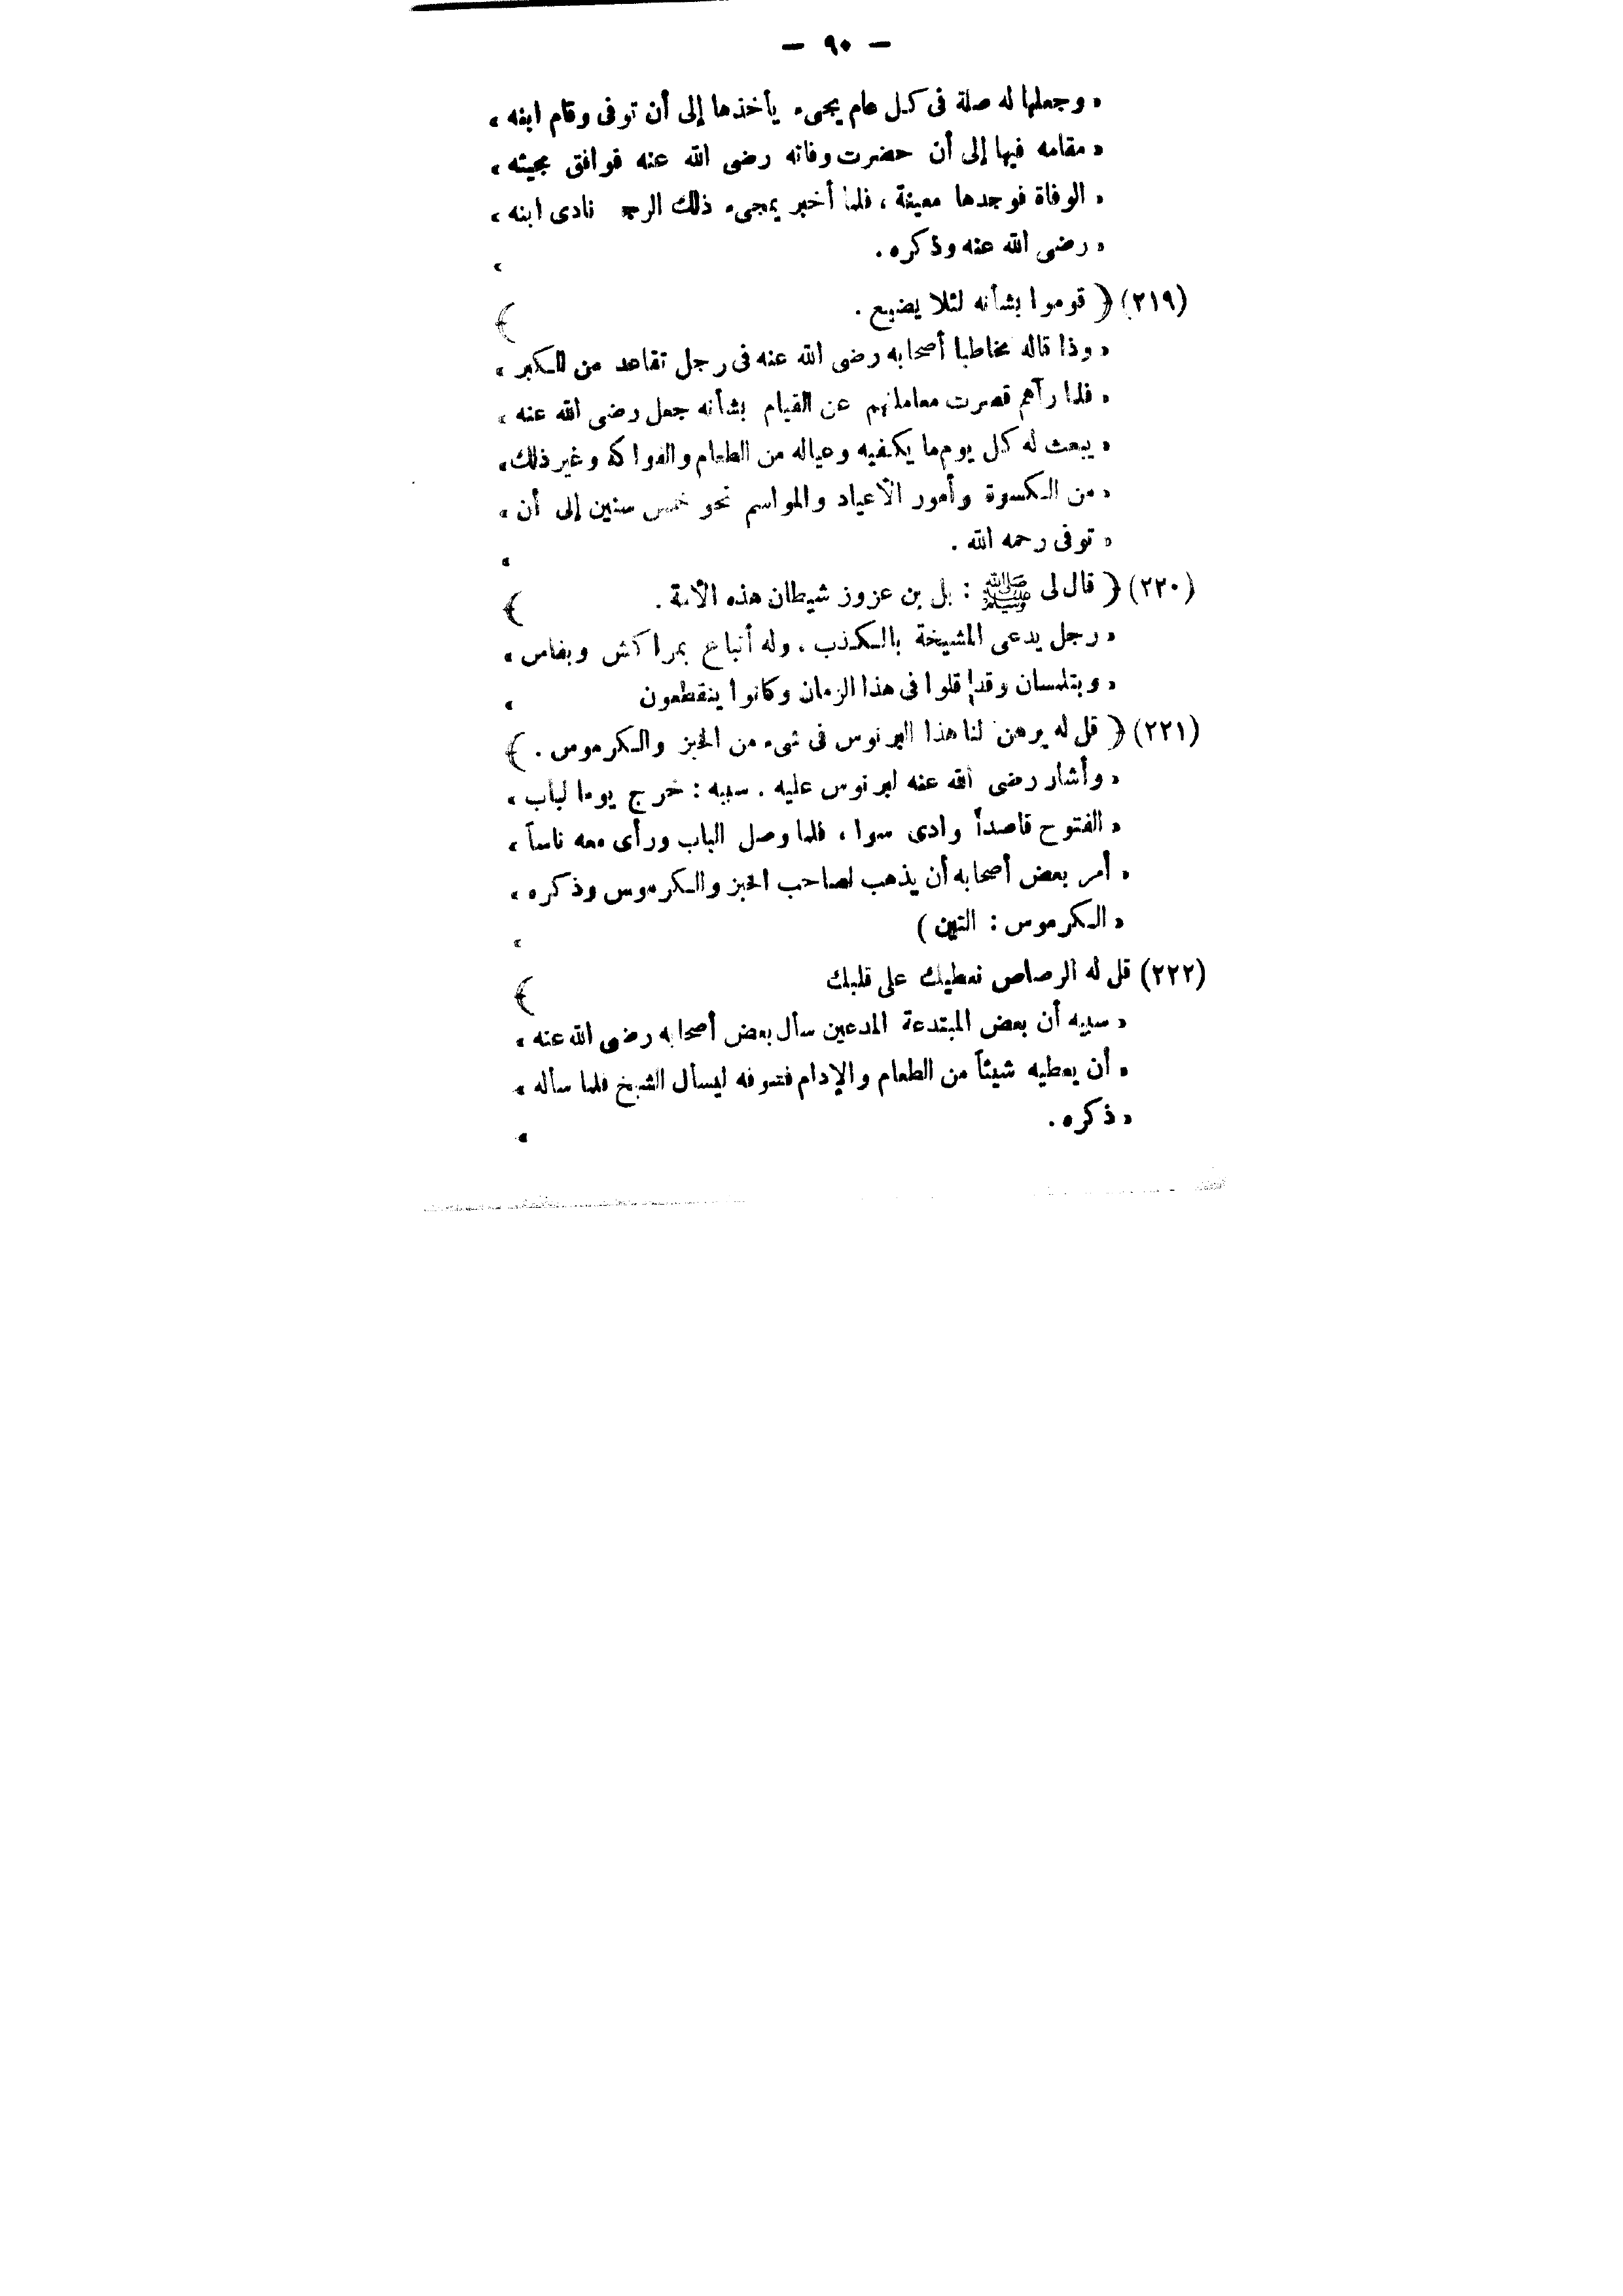 — ٩٠ —
« وجعلها له صلة فى كل عام يجىء يأخذها إلى أن توفى وقام ابنه »
« مقامه فيها إلى أن حضرت وفاته رضى الله عنه فوافق مجيئه »
« الوفاة فوجدها معينة ، فلما أخبر بمجىء ذلك نادى ابنه »
« رضى الله عنه وذكره . »
(٢١٩) ﴿ قوموا بشأنه لئلا يضيع . ﴾
« وذا قاله مخاطبا أصحابه رضى الله عنه فى رجل تقاعد من الكبر »
« فلما رآهم قصرت معاملتهم عن القيام بشأنه جعل رضى الله عنه »
« يبعث له كل يوم ما يكفيه وعياله من الطعام والفواكه وغير ذلك »
« من الكسوة وأمور الأعياد والمواسم نحو خمس سنين إلى أن »
« توفى رحمه الله . »
(٢٢٠) ﴿ قال لى ﷺ : بل بن عزوز شيطان هذه الأمة . ﴾
« رجل يدعى المشيخة بالكذب . وله أتباع بمراكش وبفاس »
« وبتلمسان وقد قلوا فى هذا الزمان وكانوا ينقطعون »
(٢٢١) ﴿ قل له يرهن لنا هذا البرنوس فى شىء من الخبز والكرموس . ﴾
« وأشار رضى الله عنه لبرنوس عليه . سببه : خرج يوما لباب »
« الفتوح قاصداً وادى سوا ، فلما وصل الباب ورأى معه ناساً »
« أمر بعض أصحابه أن يذهب لصاحب الخبز والكرموس وذكره »
« الكرموس : التين ) »
(٢٢٢) قل له الرصاص نعطيك على قلبك ﴾
« سببه أن بعض المبتدعة المدعين سأل بعض أصحابه رضى الله عنه »
« أن يعطيه شيئاً من الطعام والإدام فسوفه ليسأل الشيخ فلما سأله »
« ذكره . »